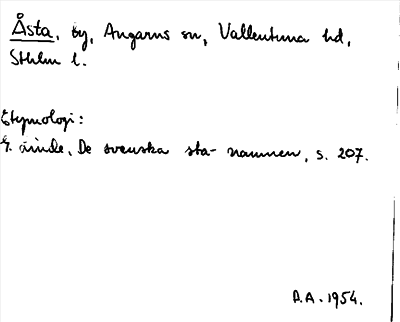 Åsta, by, Angarns sn, Vallentuna hd,
Sthlm l.
Etymologi:
G. Linde, De svenska sta-namnen, s. 207.
A.A. 1954.